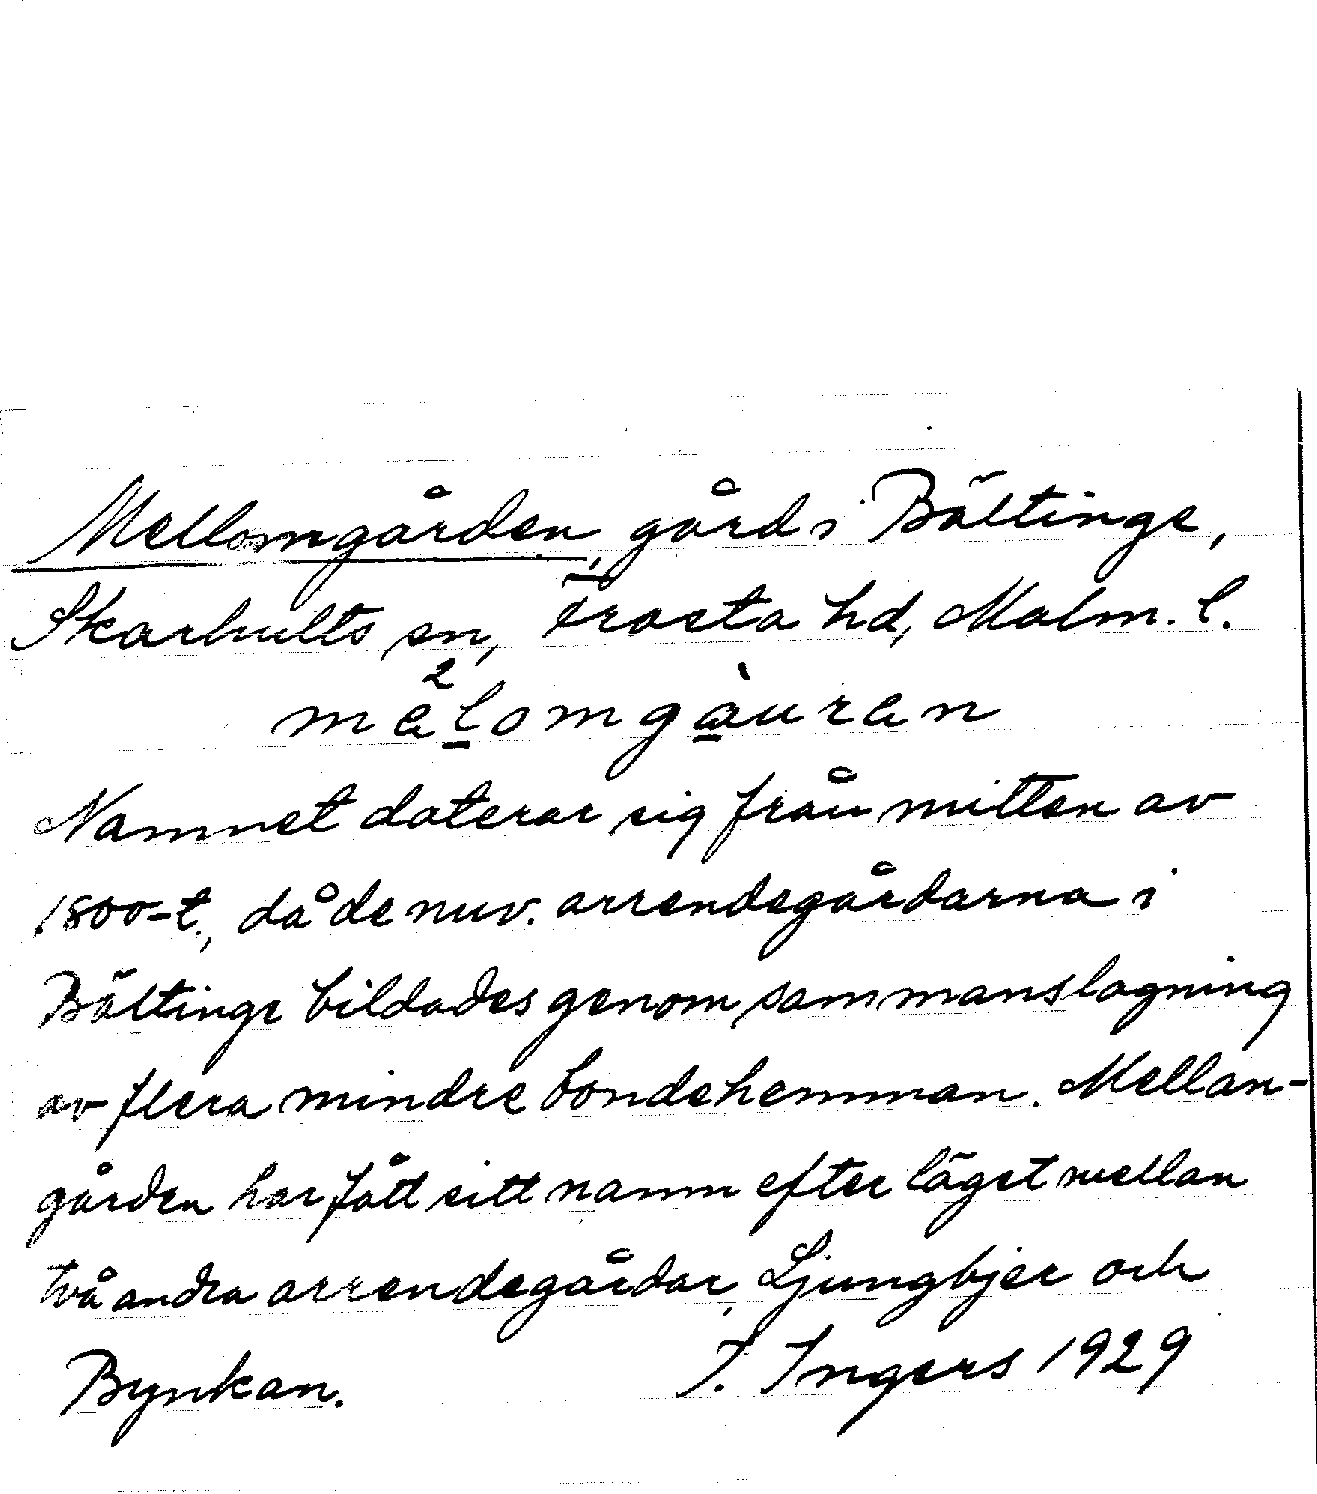 Mellomgården, gård i Bältinge,
Skarhults sn, Frosta hd, Malm. l.
mälomgàuran
Namnet daterar sig från mitten av
1800-t., då de nuv. arrendegårdarna i
Bältinge bildades genom sammanslagning
av flera mindre bondehemman. Mellan-
gården har fått sitt namn efter läget mellan
två andra arrendegårdar, Ljungbjer och
Bynkan. I. Ingers 1929